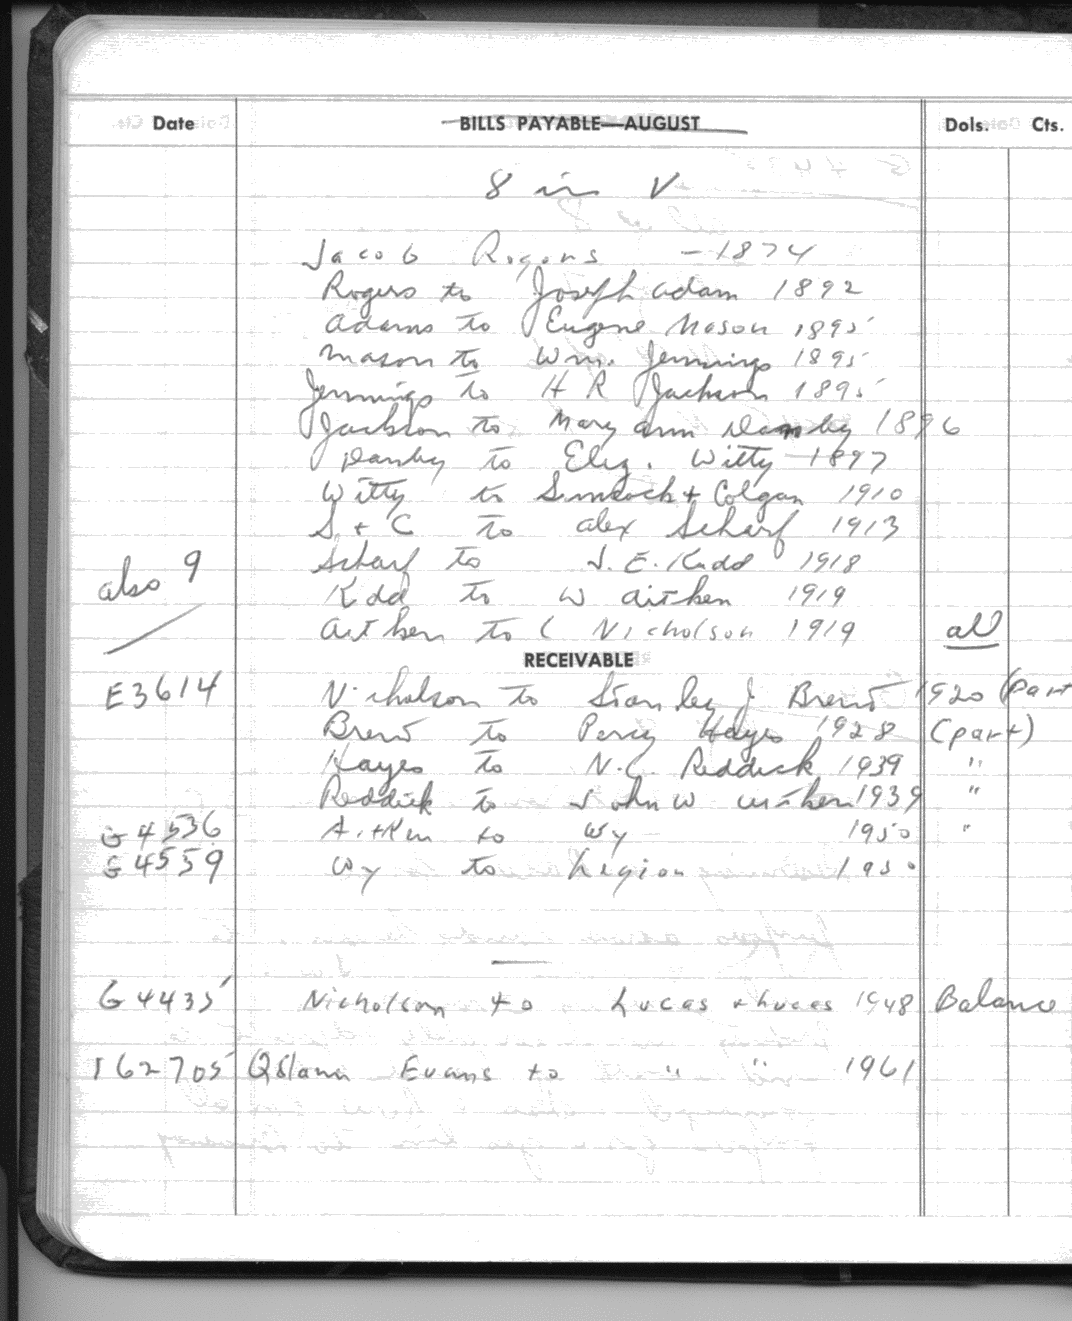 Date BILLS PAYABLE—AUGUST Dols. Cts.
8 in V
Jacob Rogers – 1874
Rogers to Joseph Adam 1892
Adams to Eugene Mason 1895
Mason to Wm. Jennings 1895
Jennings to H R Jackson 1895
Jackson to Mary Ann Danby 1896
Danby to Eliz. Witty 1897
Witty to Simcock + Colgan 1910
S. + C to Alex Scharf 1913
Scharf to J. E. Kidd 1918
also 9 Kidd to W Aitken 1919
Aitken to C Nicholson 1919 all
RECEIVABLE
E3614 Nicholson to Stanley J Brent 1920 (part
Brent to Percy Hayes 1928 (part)
Hayes to N.C. Reddick 1939 "
Reddick to John W Aitken 1939 "
G 4536 Aitken to Wy 1950 "
G 4559 Wy to Legion 1950
G 4435 Nicholson to Lucas + Lucas 1948 Balance
162705 Evans to " " 1961